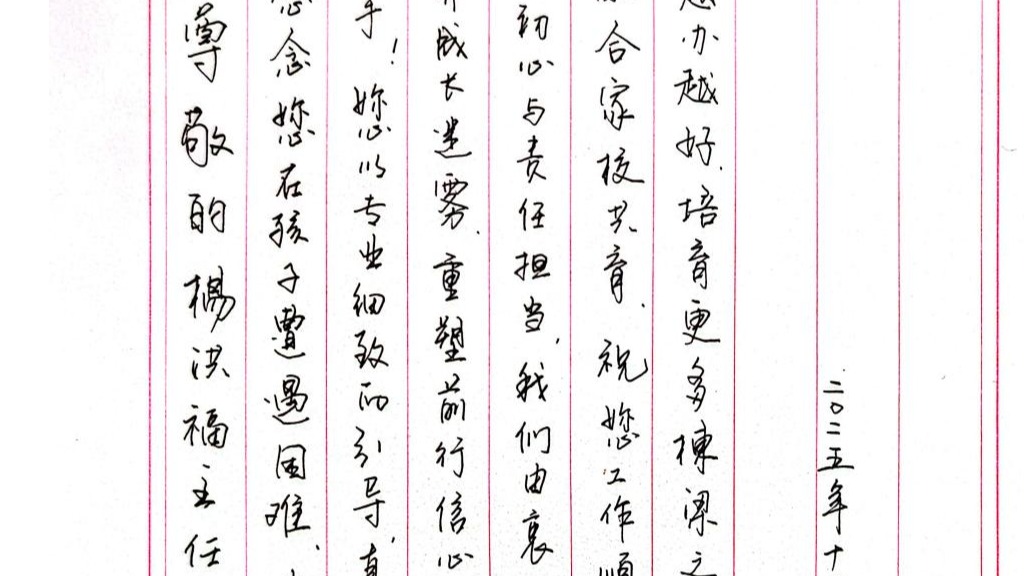 尊敬的楊洪福主任
念您在孩子遭遇困难、
！您以专业细致的引导，真
成长迷雾、重塑前行信心
初心与责任担当，我们由衷
合家校共育、祝您工作顺
办越好、培育更多棟梁之
二〇二五年十